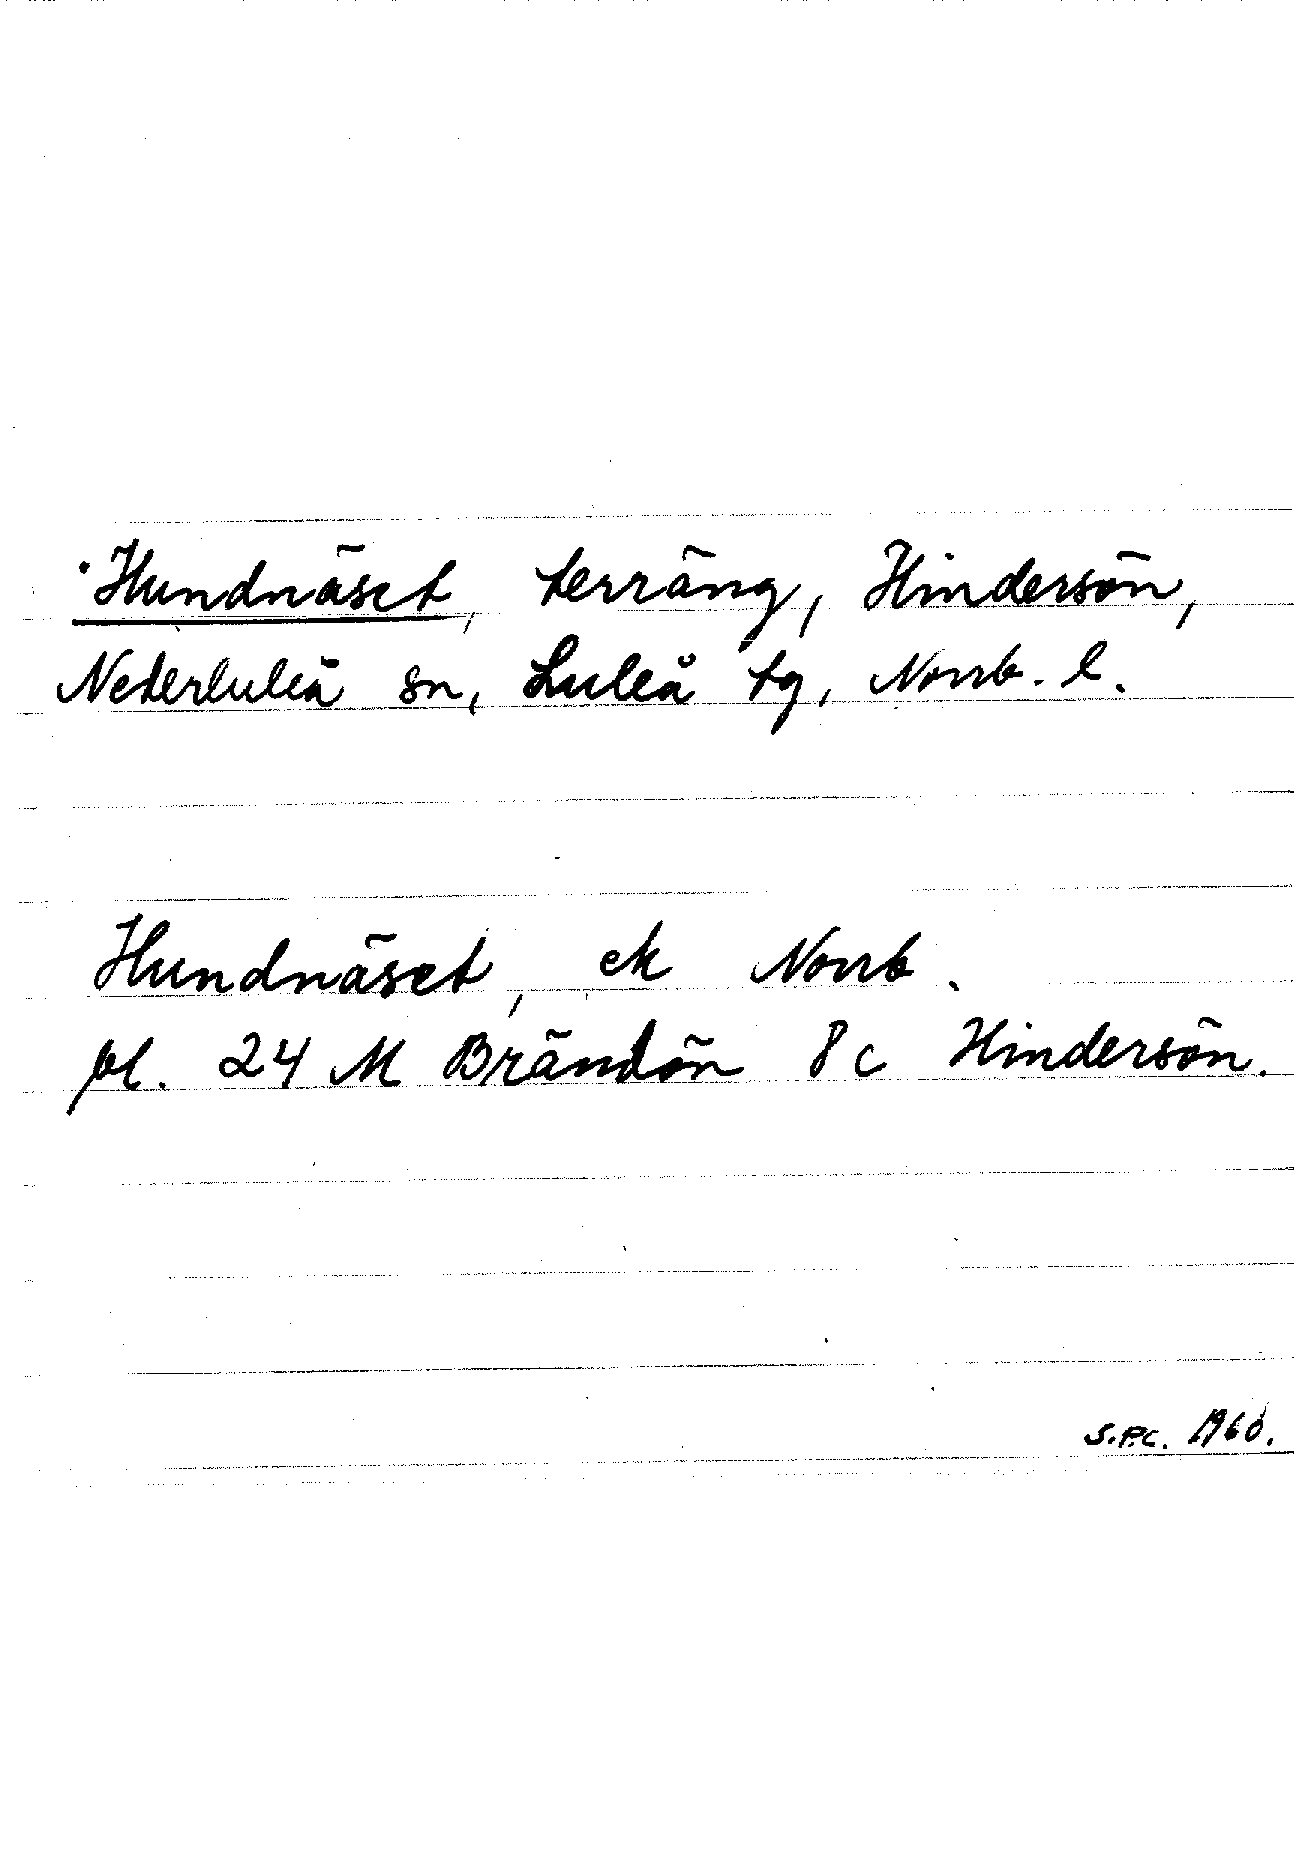 ·Hundnäset, terräng, Hindersön,
Nederluleå sn, Luleå tg, Norrb. l.
Hundnäset, ek Norrb.
pl. 24 M Brändön 8 c Hindersön.
S.P.C. 1960.